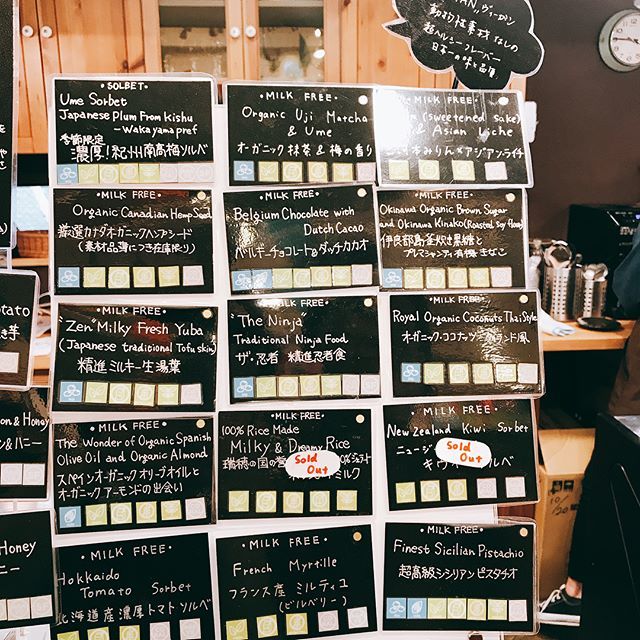 動物性素材なしの
超ヘルシーフレーバー
日本一の味と品質
• SORBET •
Ume Sorbet
Japanese Plum From Kishu
-Wakayama pref
季節限定
濃厚!紀州南高梅ソルベ
• MILK FREE •
Organic Uji Matcha
& Ume
オーガニック抹茶&梅の香り
• MILK FREE •
(sweetened sake)
& Asian Liche
本みりん×アジアンライチ
• MILK FREE •
Organic Canadian Hemp Seed
厳選カナダオーガニックヘンプシード
(素材品薄につき在庫限り)
• MILK FREE •
Belgium Chocolate with
Dutch Cacao
ベルギーチョコレート&ダッチカカオ
• MILK FREE •
Okinawa Organic Brown Sugar
and Okinawa Kinako (Roasted Soy flour)
伊良部島釜炊き黒糖と
プレマシャンティ有機きなこ
• MILK FREE •
"Zen" Milky Fresh Yuba
(Japanese traditional Tofu skin)
精進ミルキー生湯葉
• MILK FREE •
"The Ninja"
Traditional Ninja Food
ザ・忍者 精進忍者食
• MILK FREE •
Royal Organic Coconuts Thai Style
オーガニック・ココナッツ
ランド風
• MILK FREE •
The Wonder of Organic Spanish
Olive Oil and Organic Almond
スペインオーガニックオリーブオイルと
オーガニックアーモンドの出会い
• MILK FREE •
100% Rice Made
Milky & Dreamy Rice
瑞穂の国の
ミルク
Sold
Out
• MILK FREE •
New Zealand Kiwi Sorbet
ニュージ
キウイ ルベ
Sold
Out
• MILK FREE •
Hokkaido
Tomato Sorbet
北海道産濃厚トマトソルベ
• MILK FREE •
French Myrtille
フランス産 ミルティユ
(ビルベリー)
• MILK FREE •
Finest Sicilian Pistachio
超高級シシリアンピスタチオ
otato
き芋
on & Honey
ン&ハニー
Honey
ニー